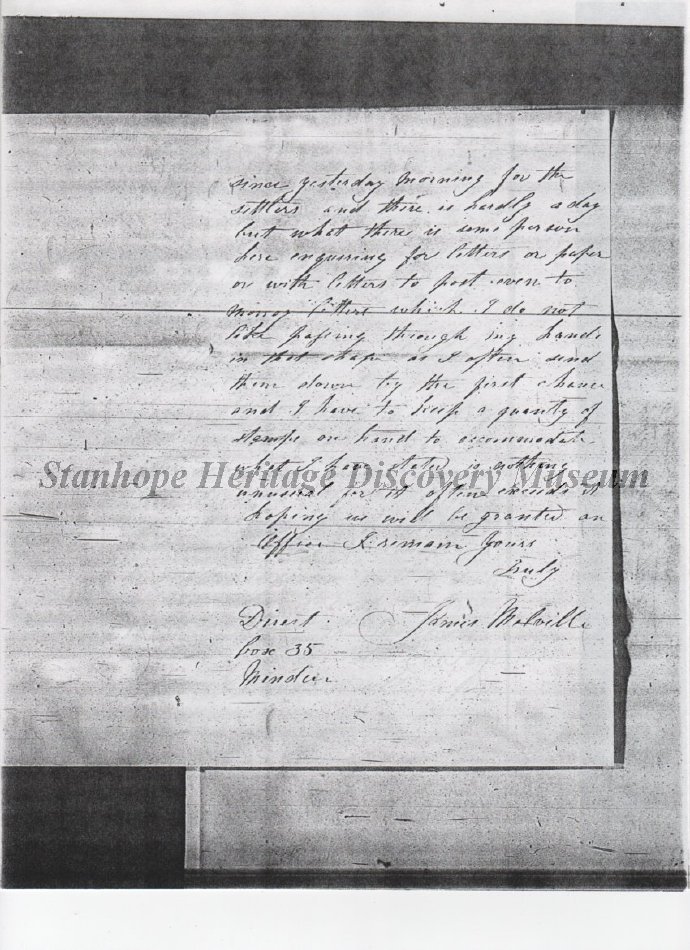 since yesterday morning for the
settlers and there is hardly a day
but what there is some person
here enquiring for letters or paper
or with letters to post even to
money letters which I do not
like passing through my hands
in that shape as I often send
them down by the first chance
and I have to keep a quantity of
stamps on hand to accommodate
what I have stated is nothing
unusual for it often exceeds it
hoping we will be granted an
Office I remain Yours
Truly
James Melville
Direct
box 35
Minden
Stanhope Heritage Discovery Museum